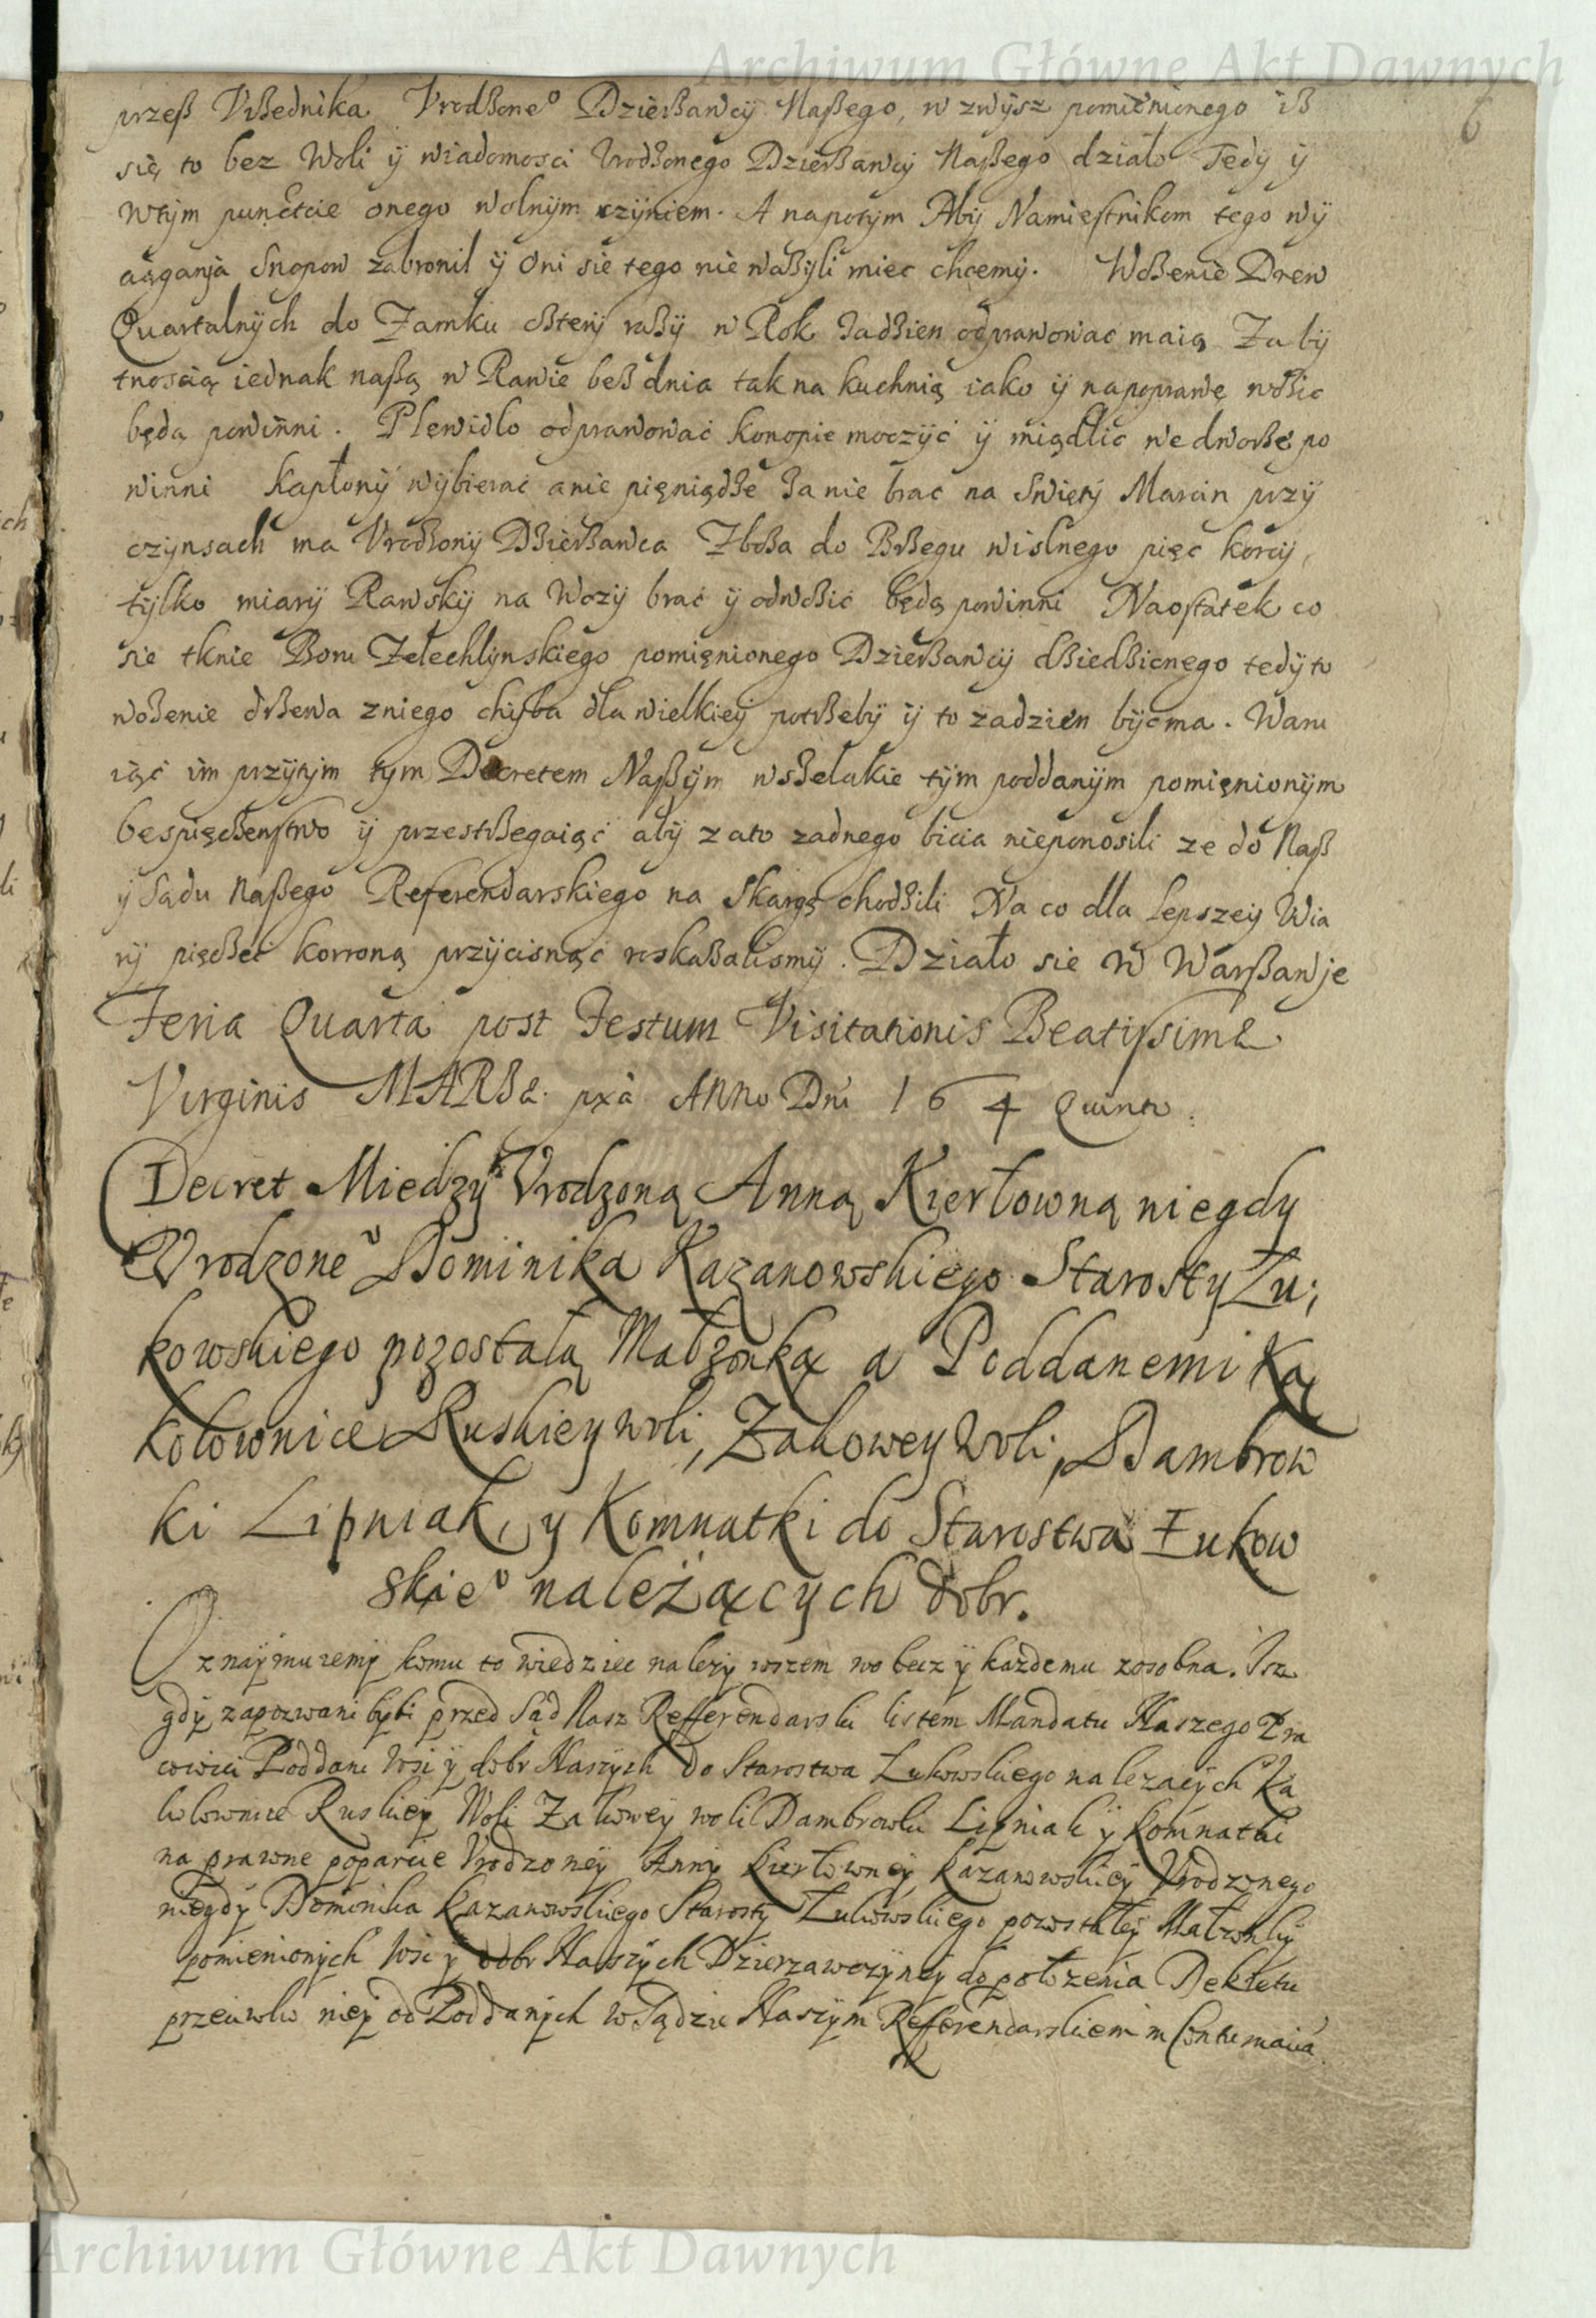 Archiwum Główne Akt Dawnych
6
przeß Vrßednika Vrodßoneº Dzierßawcy Naßego, w zwysz pomięnionego iß
się to bez Woli ÿ wiadomosci Vrodßonego Dzierßawcÿ Naßego działo Tedÿ ÿ
Wtÿm punctcie onego wolnÿm czÿniem. A napotÿm Abÿ Namiestnikom tego wÿ
ciąganja Snopow zabronil ÿ Oni sie tego nie waßÿli miec chcemÿ. Woßenie Drew
Quartalnÿch do Zamku cßterÿ raßÿ w Rok Zadßien odprawowac maią Za bÿ
tnoscią iednak naßą w Rawie beß dnia tak na kuchnią iako ÿ na poprawę woßic
będą powinni. Plewidlo odprawować konopie moczÿć ÿ miądlic we dworße po
winni kapłonÿ wÿbierać anie pięniądße Za nie brac na Swiętÿ Marcin przÿ
czÿnsach ma Vrodßonÿ Dßierßawca Zboßa do Brßegu wislnego pięc korcÿ,
tÿlko miarÿ Rawskÿ na Wozÿ brać ÿ odwoßić będą powinni Naostatek co
sie tknie Boru Zelechlÿnskiego pomięnionego Dzierßawcÿ dßiedßicnego tedÿ to
woßenie drßewa zniego chÿba dla wielkieÿ potrßebÿ ÿ to zadzien bÿc ma. Waru
iąć im przÿtÿm tÿm Decretem Naßÿm wsßelakie tÿm poddanÿm pomięnionÿm
bespięcßenstwo ÿ przestrßegaiąć abÿ zato zadnego bicia nieponosili ze do Naß
ÿ Sądu Naßego Referendarskiego na Skargę chodßili Na co dla lepszeÿ Wia
rÿ pięcßeć korroną przÿcisnąć roskaßalismÿ. Działo sie W Warßawje
Feria Quarta post Festum Visitationis Beatissimæ
Virginis MARIæ pxa Anno Dni 164 Quinto.
Decret Miedzy Vrodzoną Anną Kierłowną niegdy
Vrodzoneº Dominika Kazanowskiego Starosty Łu;
kowskiego pozostałą Małżonką a Poddanemi Ką
kolownice Ruskiey woli, Zakowey Woli, Dambrow
ki Lipniak, y Komnatki do Starostwa Łukow
skieº należących dobr.
Oznaÿmuiemÿ komu to wiedziec nalezÿ wszem wobecz ÿ kazdemu zosobna. Isz
gdÿ zapozwani bÿli przed Sąd Nasz Refferendarski listem Mandatu Naszego Pra
cowici Poddani Wsi ÿ dobr Naszÿch do Starostwa Łukowskiego nalezacÿch Ka
kolownice Ruskieÿ Woli Zakoweÿ woli Dambrowki Lipniak ÿ Komnatki
na prawne poparcie Vrodzoneÿ Annÿ Kierłowneÿ Kazanowskieÿ Vrodzonego
niegdÿ Dominika Kazanowskiego Starostÿ Łukowskiego pozostałeÿ Małzonkÿ
pomienionÿch Wsi ÿ dobr Naszÿch Dzierzawczÿneÿ do połozenia Dekretu
przeciwko nieÿ od Poddanÿch w Sądzie Naszÿm Refferendarskiem in Contumatia
Archiwum Główne Akt Dawnych